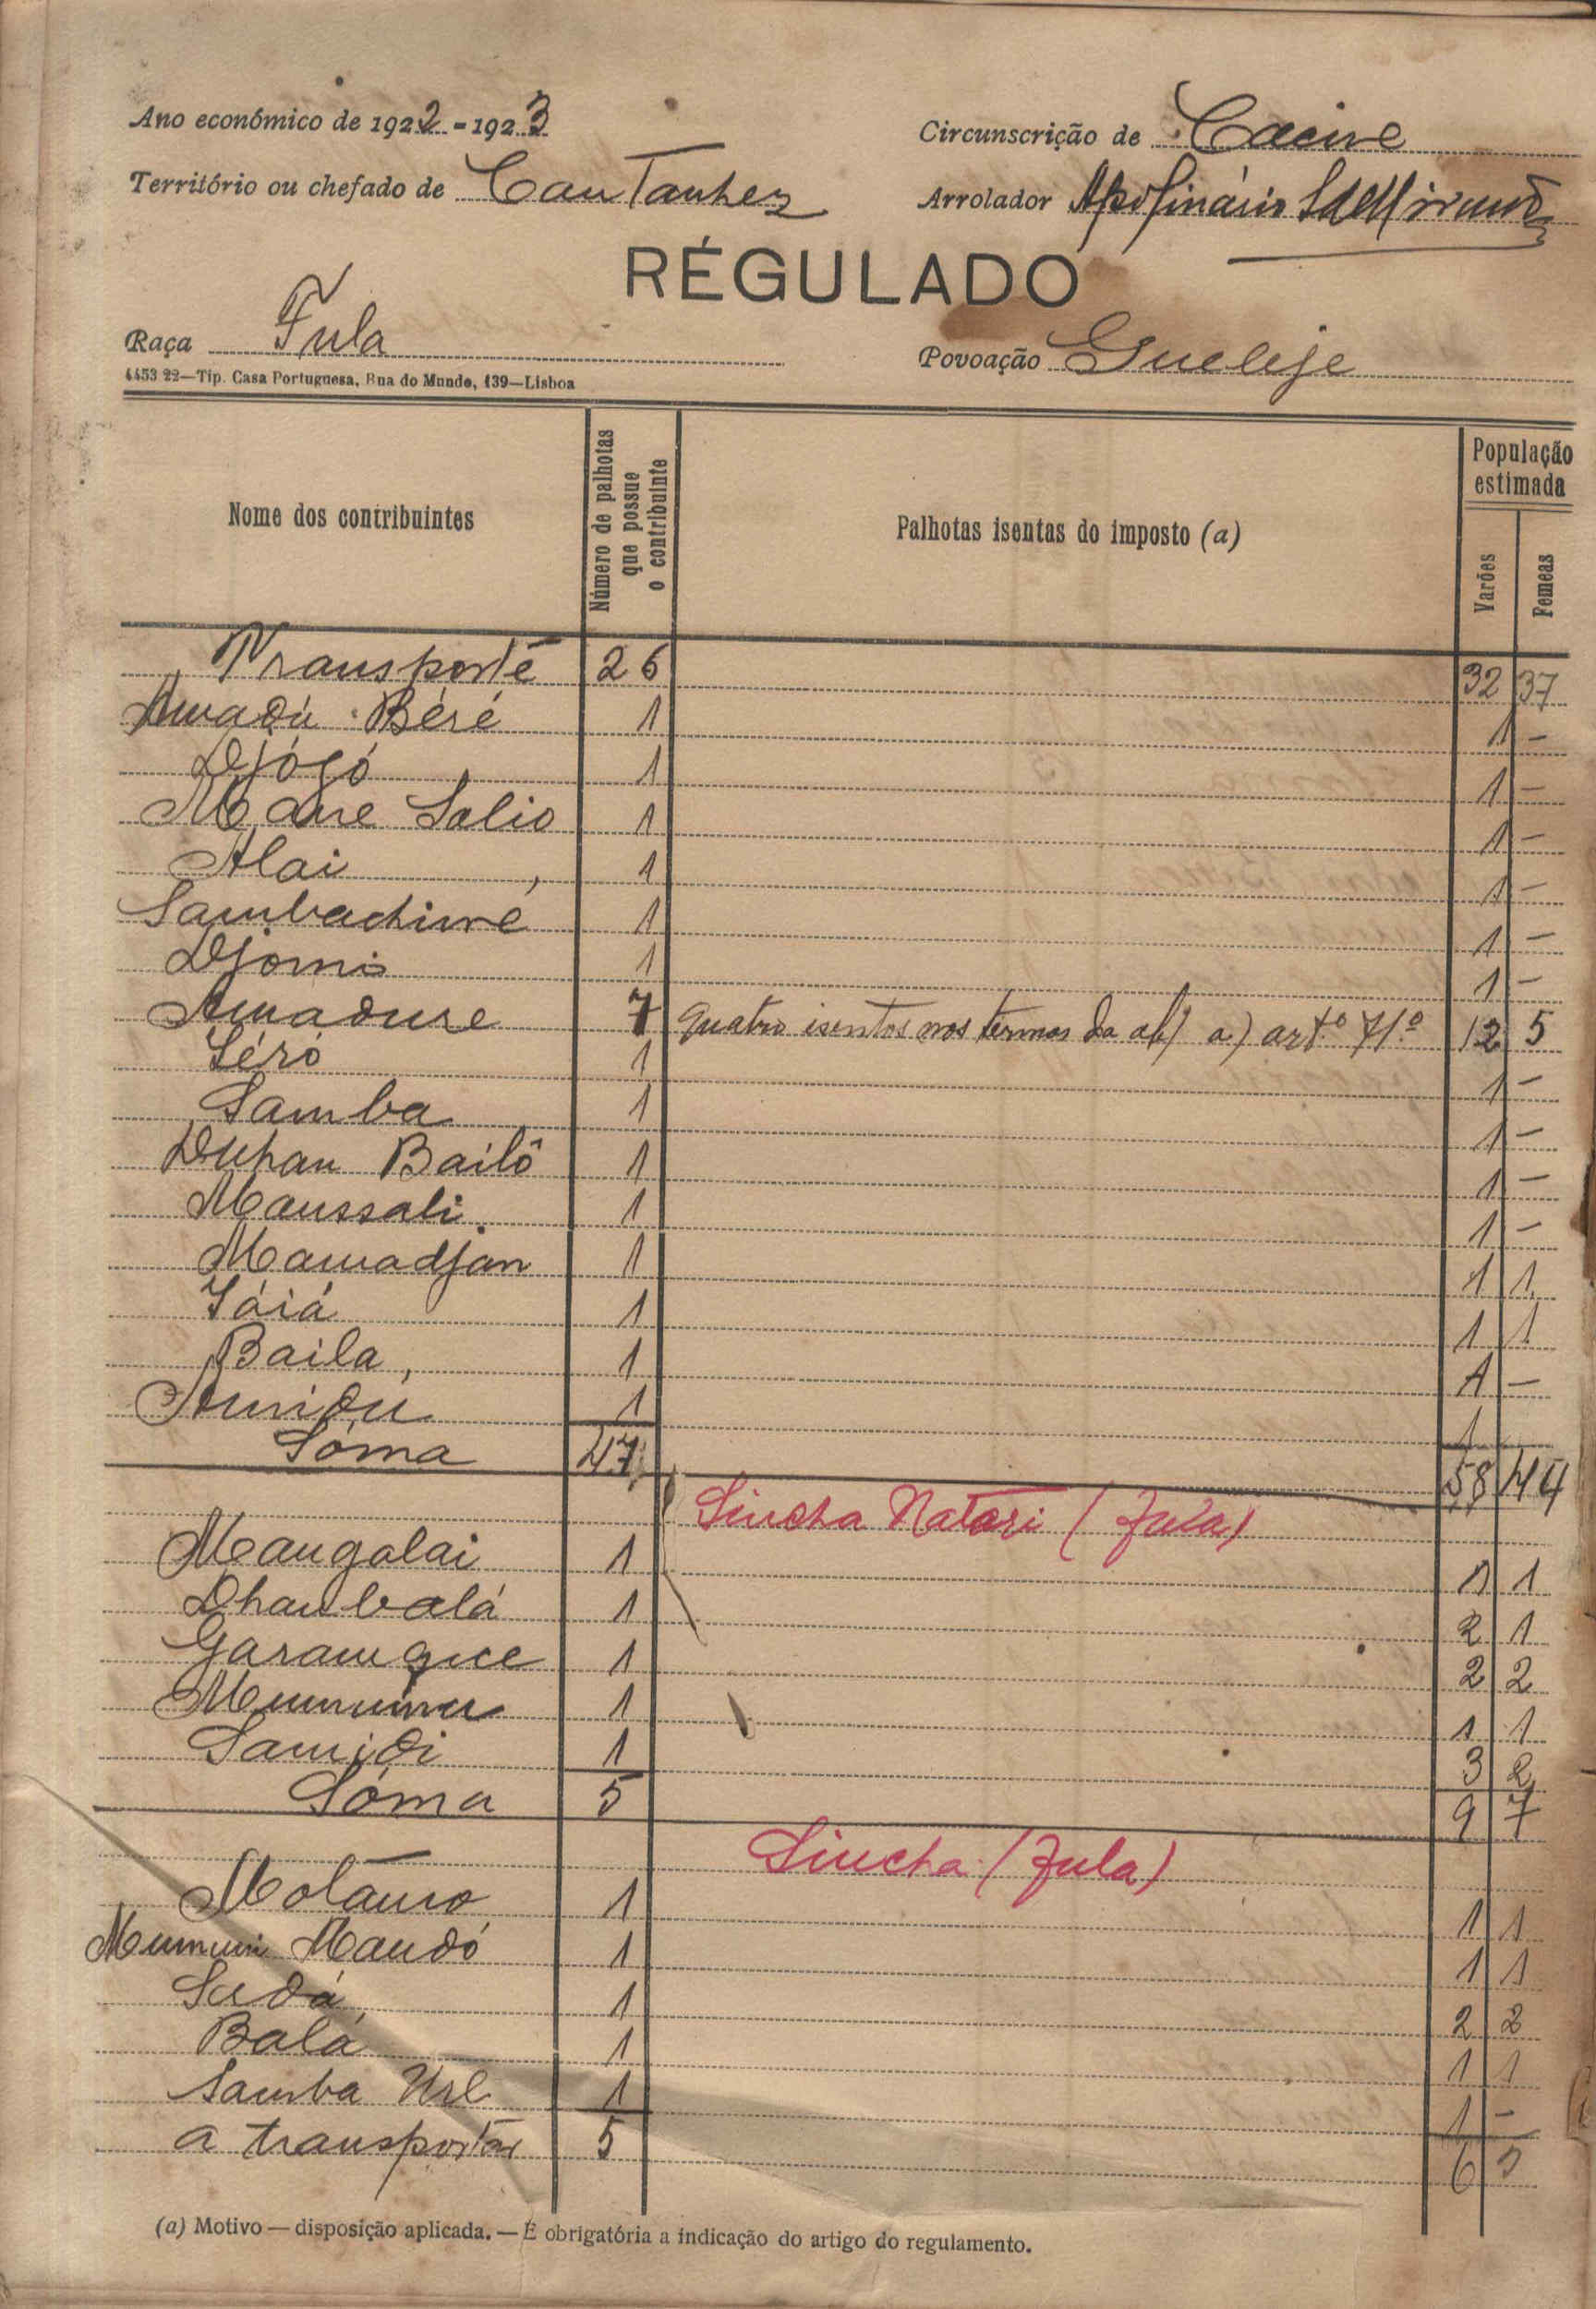 Ano económico de 1922-1923
Circunscrição de Cacine
Território ou chefado de Cantanhez
Arrolador Apolinário
RÉGULADO
Raça Fula
Povoação Gueleje
4453 22—Tip. Casa Portuguesa, Rua do Mundo, 139—Lisboa
Nome dos contribuintes
Número de palhotas que possue o contribuinte
Palhotas isentas do imposto (a)
População estimada
Varões
Femeas
Transporte 26 32 37
Amadú Béré 1 1 -
Djógó 1 1 -
Mane Salio 1 1 -
Alai 1 1 -
1 1 -
1 1 -
Amadure 7 quatro isentos nos termos da al) a) artº 71º 12 5
Séró 1 1 -
Samba 1 1 -
Bailô 1 1 -
Maussali 1 1 -
Mamadjan 1 1 1
Iáiá 1 1 1
Baila 1 1 -
1 1
Sôma 47 58 44
Sincha Natari (Fula)
Mangalai 1 1 1
1 2 1
1 2 2
1 1 1
Samidi 1 3 2
Sôma 5 9 7
Sincha (Fula)
1 1 1
Mandó 1 1 1
Sadá 1 2 2
Balá 1 1 1
Samba 1 1 -
a transportar 5 6 5
(a) Motivo — disposição aplicada. — É obrigatória a indicação do artigo do regulamento.